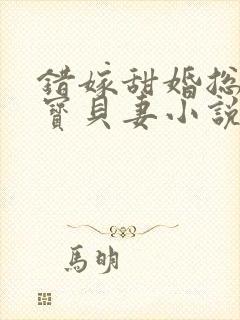 錯嫁甜婚总
寶貝妻小說
馬明